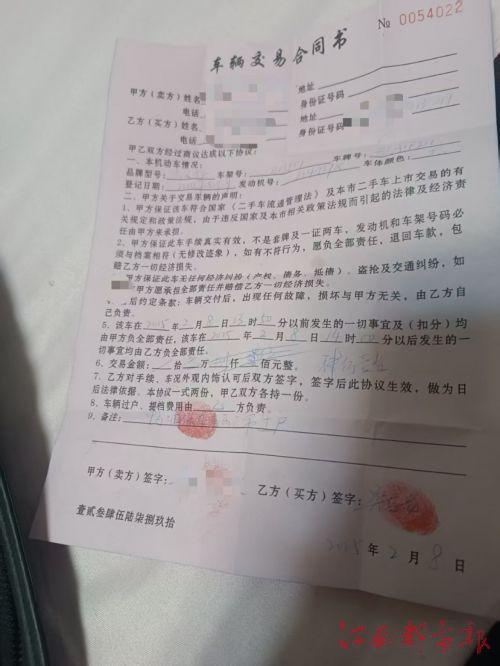 № 0054022
车辆交易合同书
甲方（卖方）姓名 地址
电话 身份证号码
乙方（买方）姓名 地址
电话 身份证号码
甲乙双方经过商议达成以下协议：
一、本机动车情况： 车牌号：
品牌型号： 车架号： 车体颜色：
登记日期： 发动机号：
二、甲方关于交易车辆的声明：
1、甲方保证该车符合国家《二手车流通管理法》及本市二手车上市交易的有
关规定和政策法规，由于违反国家及本市相关政策法规而引起的法律及经济责
任由甲方来承担。
2、甲方保证此车手续真实有效，不是套牌及一证两车，发动机和车架号码必
须与档案相符（无修改迹象），如有不符行为，愿负全部责任，退回车款，包
赔乙方一切经济损失。
保证此车无任何经济纠纷（产权、债务、抵债）、盗抢及交通纠纷，如
甲方愿承担全部责任并赔偿乙方一切经济损失。
后约定条款：车辆交付后，出现任何故障，损坏与甲方无关，由乙方自
己负责。
5、该车在2015年2月8日13时50分以前发生的一切事宜及（扣分）均
由甲方负全部责任。该车在2015年2月8日14时50分以后发生的一
切事宜均由乙方负全部责任。
6、交易金额： 拾 万 仟 佰元整。
7、乙方对手续、车况外观内饰认可后双方签字，签字后此协议生效，做为日
后法律依据。本协议一式两份，甲乙双方各持一份。
8、车辆过户、提档费用由 方负责。
9、备注：
甲方（卖方）签字： 乙方（买方）签字：
壹贰叁肆伍陆柒捌玖拾
2015年2月8日
江南都市报